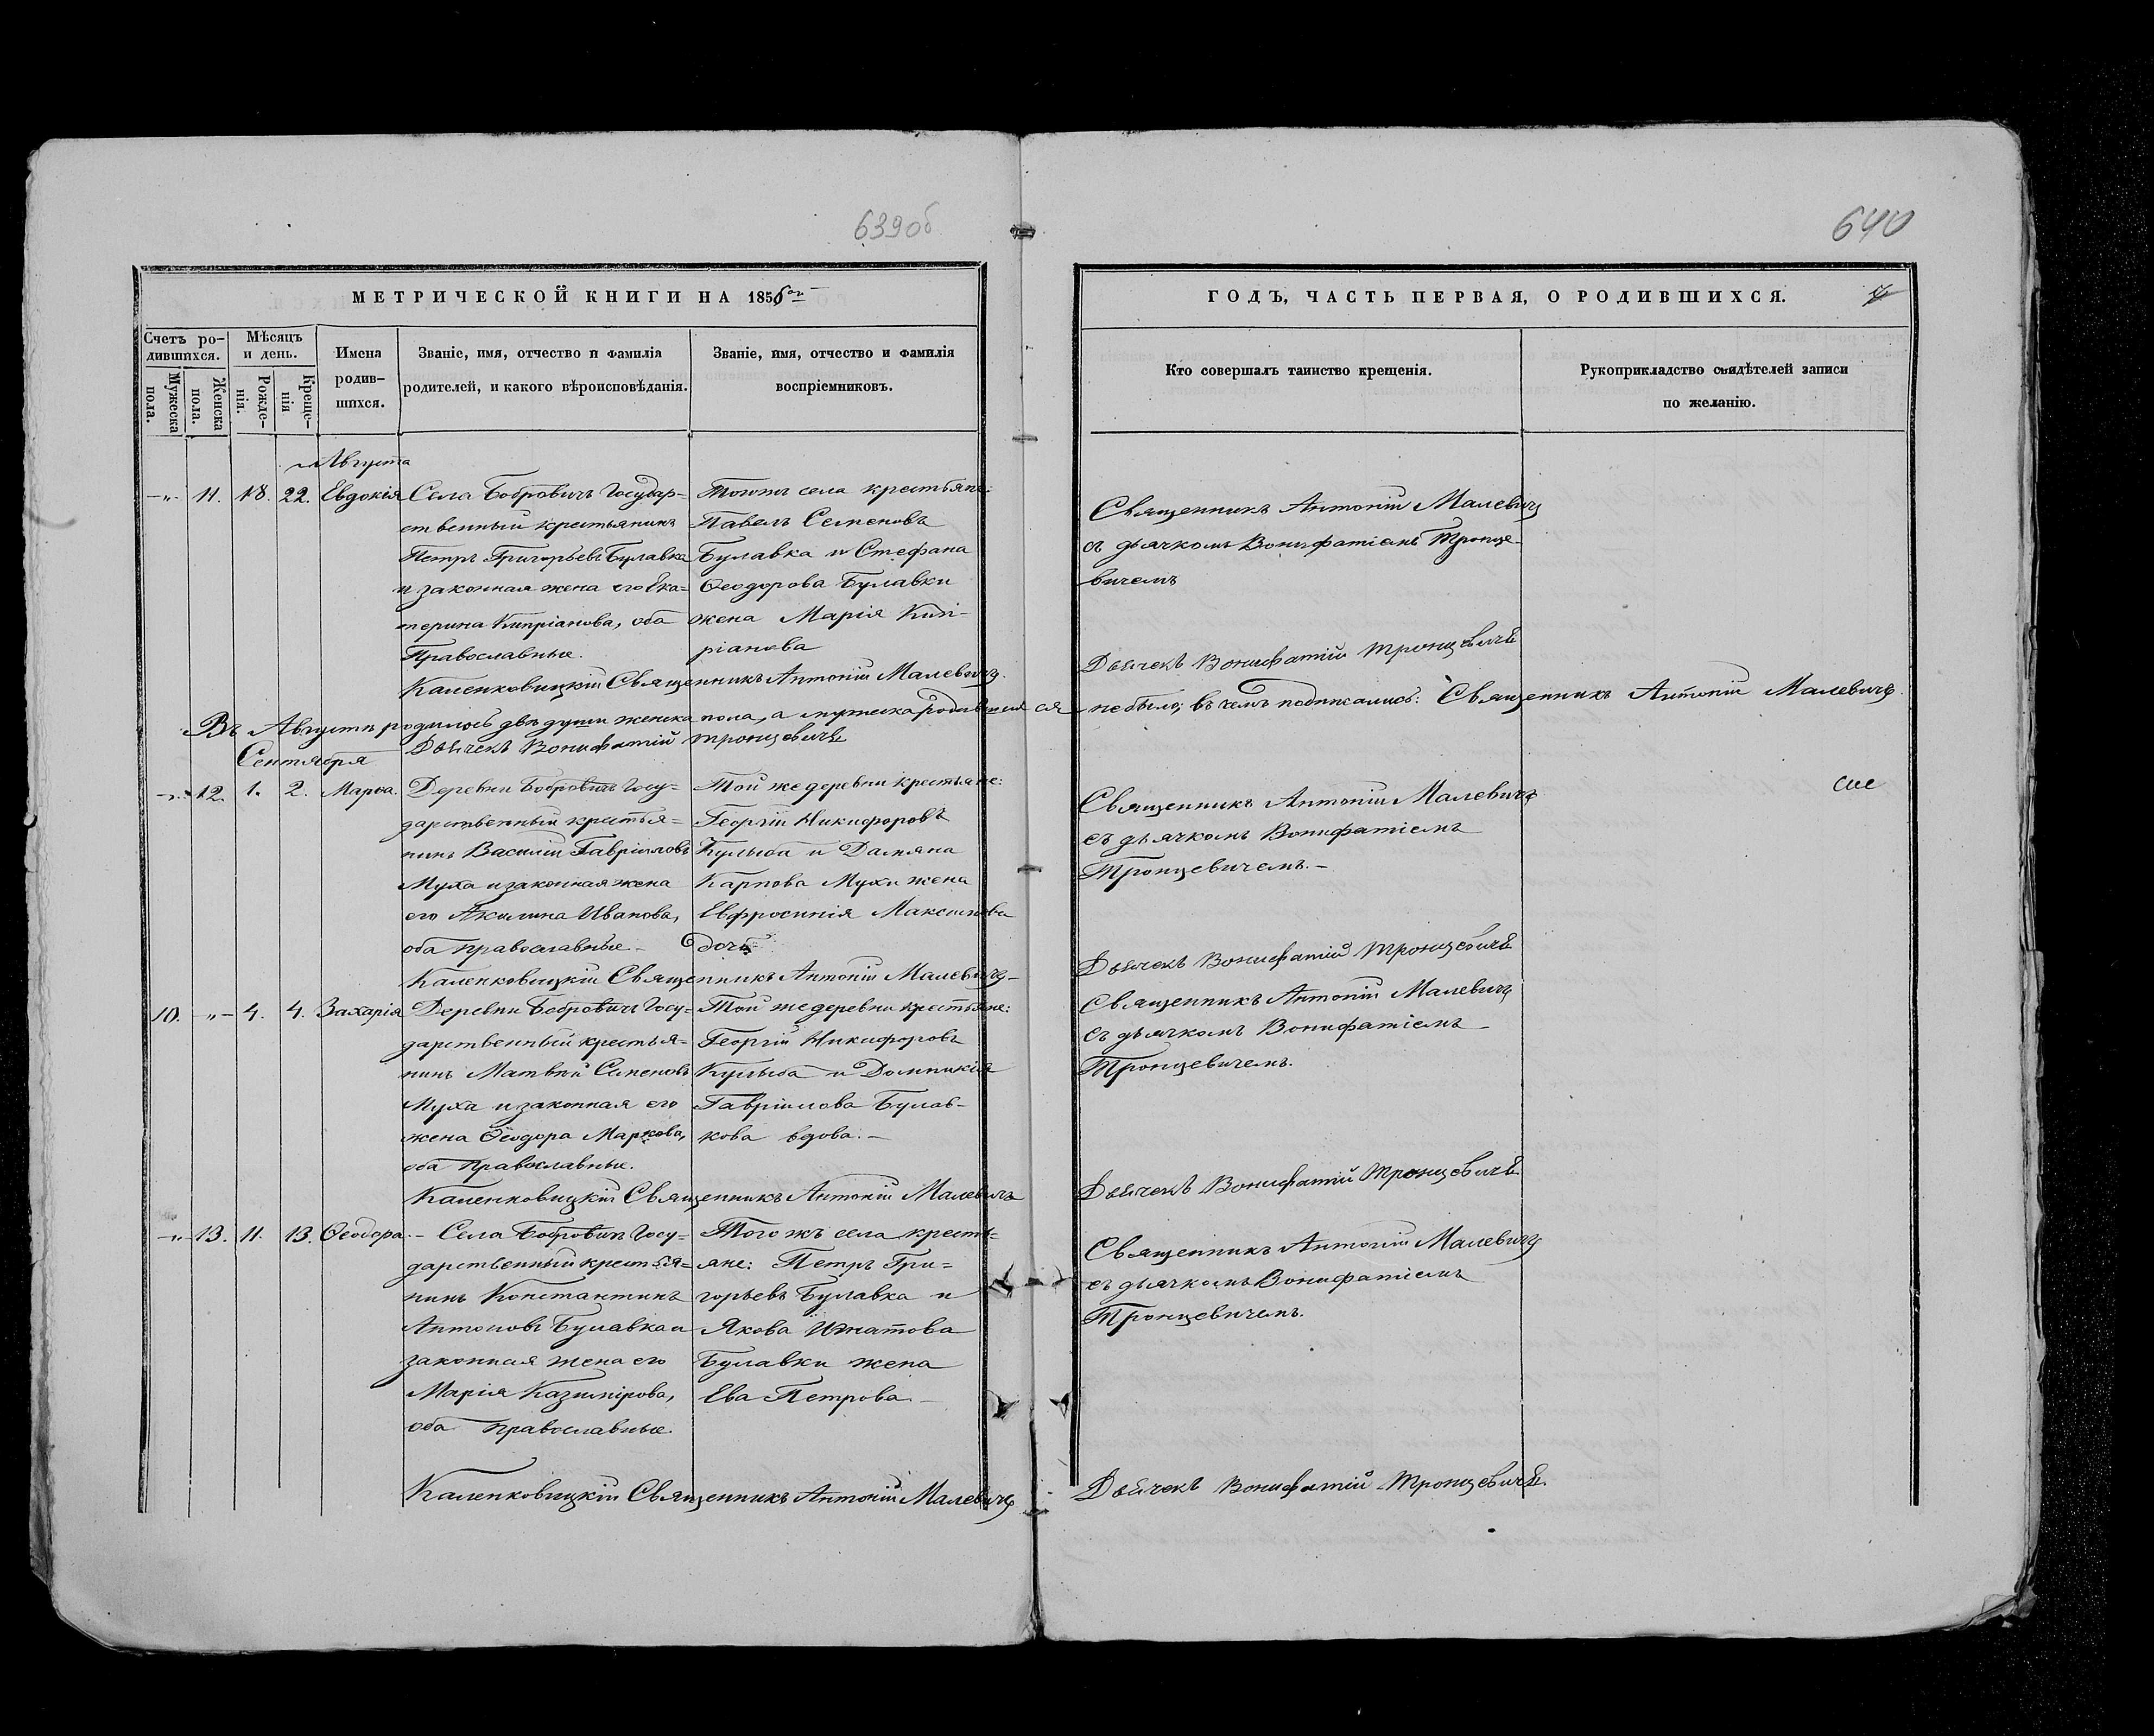 639об
640
МЕТРИЧЕСКОЙ КНИГИ НА 1856ой
ГОДЪ, ЧАСТЬ ПЕРВАЯ, О РОДИВШИХСЯ.
Счетъ ро-
дившихся.
Мужеска
пола.
Женска
пола.
Мѣсяцъ
и день.
Рожде-
нія.
Креще-
нія
Имена
родив-
шихся.
Званіе, имя, отчество и фамилія
родителей, и какого вѣроисповѣданія.
Званіе, имя, отчество и фамилія
воспріемниковъ.
Кто совершалъ таинство крещенія.
Рукоприкладство свидѣтелей записи
по желанію.
Августа
-„- 11. 18. 22. Евдокія
Села Бобровичъ Государ-
ственный крестьянинъ
Петръ Григорьевъ Булавка
и законная жена его Ека-
терина Кипріанова, оба
Православные.
Тогожъ села крестьяне:
Павелъ Семеновъ
Булавка и Стефана
Ѳеодорова Булавки
жена Марія Кип-
ріанова
Священникъ Антоній Малевичъ
съ дьячкомъ Вонифатіемъ Тронце-
вичемъ
Каленковицкій Священникъ Антоній Малевичъ.
Дьячекъ Вонифатій Тронцевичъ
Въ Августѣ родилось двѣ души женска пола, а мужеска родившихся не было; въ чемъ подписались: Священникъ Антоній Малевичъ.
Дьячекъ Вонифатій Тронцевичъ
Сентября
-„- 12. 1. 2. Марѳа.
Деревни Бобровичъ Госу-
дарственный крестья-
нинъ Василій Гавріиловъ
Муха и законная жена
его Акилина Иванова,
оба православные. -
Той же деревни крестьяне:
Георгій Никифоровъ
Кулыба и Дамяна
Карпова Мухи жена
Евфросинія Максимова
дочь
Священникъ Антоній Малевичъ
съ дьячкомъ Вонифатіемъ
Тронцевичемъ. -
Каленковицкій Священникъ Антоній Малевичъ
Дьячекъ Вонифатій Тронцевичъ
10. -„- 4. 4. Захарія
Деревни Бобровичъ Госу-
дарственный крестья-
нинъ Матвѣй Семеновъ
Муха и законная его
жена Ѳеодора Маркова,
оба Православные.
Той же деревни крестьяне:
Георгій Никифоровъ
Кулыба и Домникія
Гавріилова Булав-
кова вдова. -
Священникъ Антоній Малевичъ
съ дьячкомъ Вонифатіемъ
Тронцевичемъ.
Каленковицкій Священникъ Антоній Малевичъ
Дьячекъ Вонифатій Тронцевичъ
-„- 13. 11. 13. Ѳеодора.
- Села Бобровичъ Госу-
дарственный крестья-
нинъ Константинъ
Антоновъ Булавка и
законная жена его
Марія Казимірова,
оба православные.
Того жъ села кресть-
яне: Петръ Гри-
горьевъ Булавка и
Якова Игнатова
Булавки жена
Ева Петрова. -
Священникъ Антоній Малевичъ
съ дьячкомъ Вонифатіемъ
Тронцевичемъ.
Каленковицкій Священникъ Антоній Малевичъ
Дьячекъ Вонифатій Тронцевичъ.